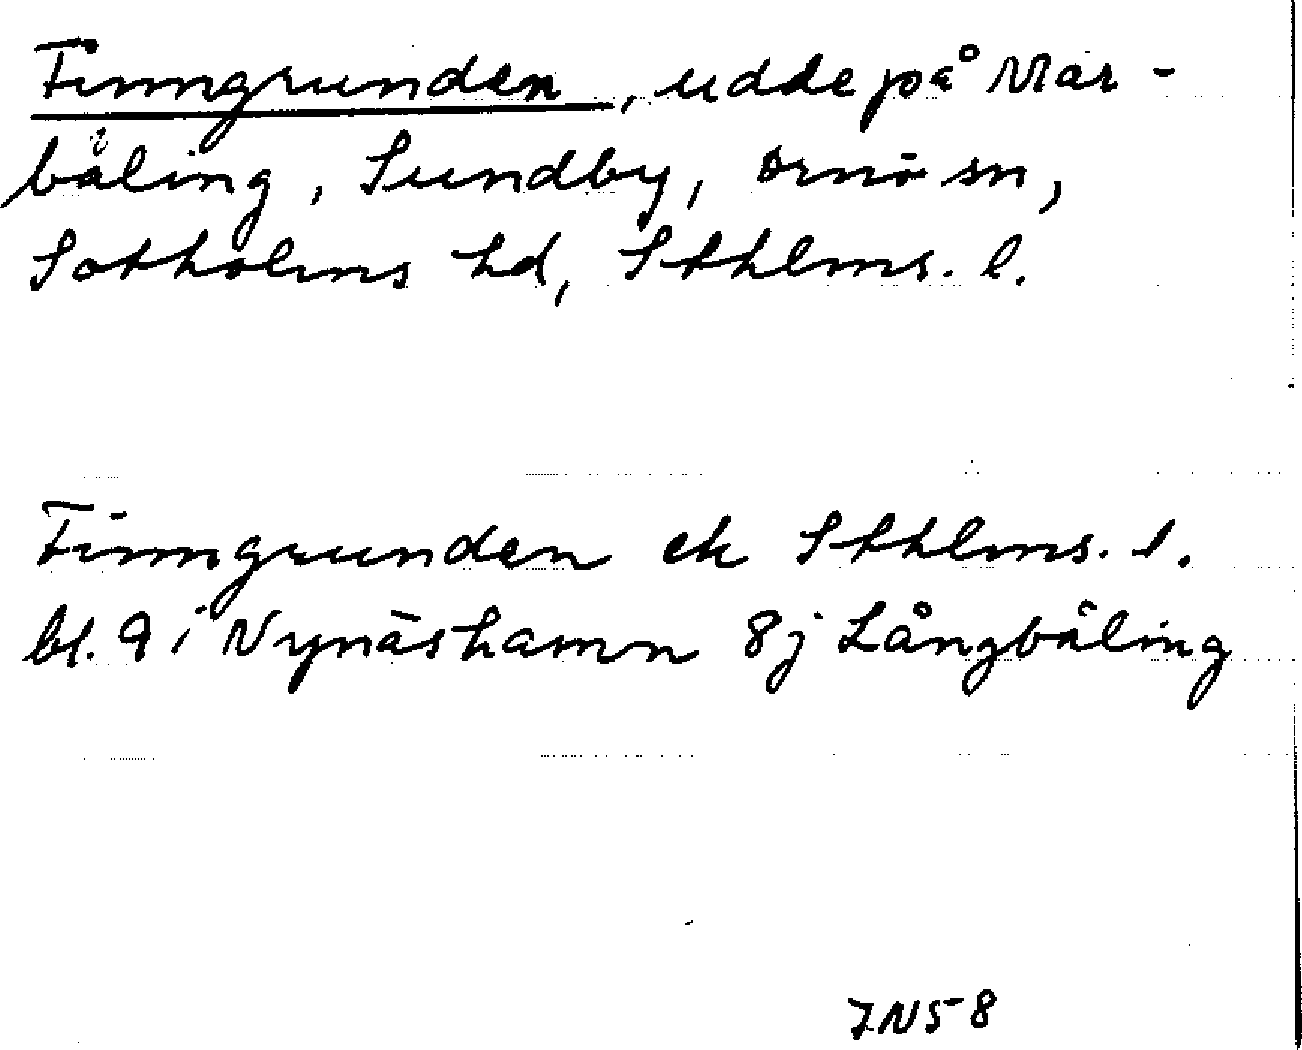 Finngrunden, udde på Mar-
båling, Sundby, Ornö sn,
Sotholms hd, Sthlms. l.
Finngrunden ek Sthlms. l.
bl. 9 i Nynäshamn 8j Långbåling
7N58